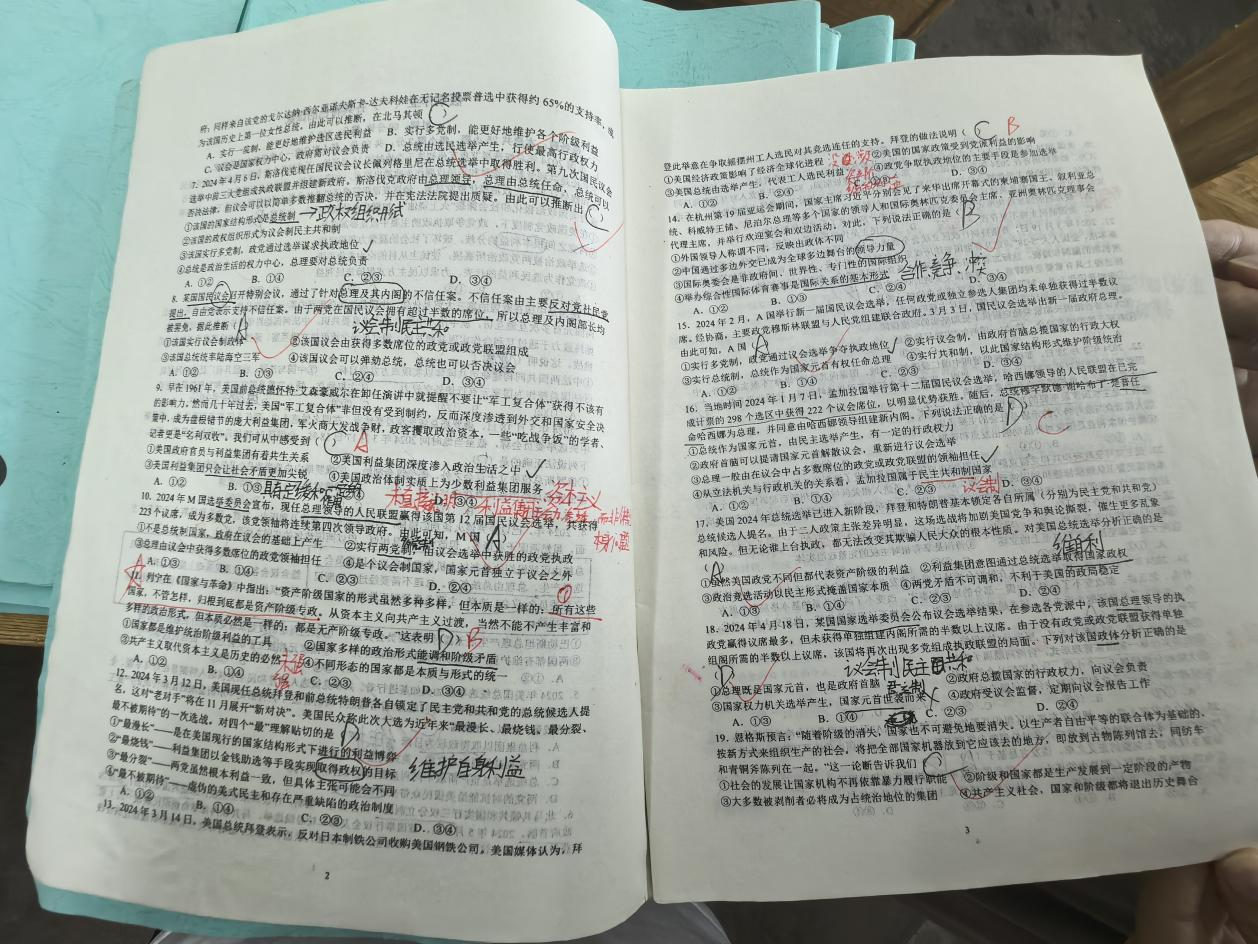 府；同样来自该党的戈尔达纳·西尔亚诺夫斯卡-达夫科娃在无记名投票普选中获得约 65%的支持率，成
为该国历史上第一位女性总统。由此可以推断，在北马其顿 C
A. 实行一院制，能更好地维护选区选民利益 B. 实行多党制，能更好地维护各个阶级利益
C. 议会是国家权力中心，政府需对议会负责 D. 总统由选民选举产生，行使最高行政权力
7. 2024 年 4 月 6 日，斯洛伐克现任国民议会议长佩列格里尼在总统选举中取得胜利。第九次国民议会
选举中斯三大党组成执政联盟并组建新政府。斯洛伐克政府由总理领导，总理由总统任命，总统可以
否决法律，但议会可以以简单多数推翻总统的否决，并在宪法法院提出质疑。由此可以推断出 C
①该国的国家结构形式是总统制 →政权组织形式
②该国的政权组织形式为议会制民主共和制
③该国实行多党制，政党通过选举谋求执政地位 ✓
④总统是政治生活的权力中心，总理要对总统负责
A. ①② B. ①④ C. ②③ D. ③④
8. 某国国民议会召开特别会议，通过了针对总理及其内阁的不信任案。不信任案由主要反对党社民党
提出，自由党表示支持不信任案。由于两党在国民议会拥有超过半数的席位，所以总理及内阁部长均
被罢免。据此推断（A 议会制民主共和
①该国实行议会制政体 ②该国议会由获得多数席位的政党或政党联盟组成
③该国总统统率陆海空三军 ④该国议会可以弹劾总统，总统也可以否决议会
A. ①② B. ①③ C. ②④ D. ③④
9. 早在 1961 年，美国前总统德怀特·艾森豪威尔在卸任演讲中就提醒不要让“军工复合体”获得不该有
的影响力，然而几十年过去，美国“军工复合体”非但没有受到制约，反而深度渗透到外交和国家安全决
策中，成为盘根错节的庞大利益集团，军火商大发战争财，政客攫取政治资本，一些“吃战争饭”的学者、
记者更是“名利双收”。我们可从中感受到（ A
①美国政府官员与利益集团有着共生关系 ②美国利益集团深度渗入政治生活之中 ✓
③美国利益集团只会让社会矛盾更加尖锐 ④美国政治体制实质上为少数利益集团服务
A. ①② B. ①③ D. ③④
10. 2024 年 M 国选举委员会宣布，现任总理领导的人民联盟赢得该国第 12 届国民议会选举，共获得
223 个议席，成为多数党，该党领袖将连续第四次领导政府。由此可知，M 国 A
①不是总统制国家，政府在议会的基础上产生 ②实行两党制，由议会选举中获胜的政党执政
③总理由议会中获得多数席位的政党领袖担任 ④是个议会制国家，国家元首独立于议会之外
A. ①③ B. ①④ C. ②③ D. ②④
A
11. 列宁在《国家与革命》中指出：“资产阶级国家的形式虽然多种多样，但本质是一样的：所有这些
国家，不管怎样，归根到底都是资产阶级专政。从资本主义向共产主义过渡，当然不能不产生丰富和
多样的政治形式，但本质必然是一样的：都是无产阶级专政。”这表明 D） B
①国家都是维护统治阶级利益的工具 ②国家多样的政治形式能调和阶级矛盾
③共产主义取代资本主义是历史的必然 ④不同形态的国家都是本质与形式的统一
A. ①② B. ①④ C. ②③ D. ③④
12. 2024 年 3 月 12 日，美国现任总统拜登和前总统特朗普各自锁定了民主党和共和党的总统候选人提
名，这对“老对手”将在 11 月展开“新对决”。美国民众称此次大选为近年来“最漫长、最烧钱、最分裂、
最不被期待”的一次选战，对四个“最”理解贴切的是 D
①“最漫长”——是在美国现行的国家结构形式下进行的利益博弈
②“最烧钱”——利益集团以金钱助选等手段实现取得政权的目标
③“最分裂”——两党虽然根本利益一致，但具体主张可能会不同 维护自身利益
④“最不被期待”——虚伪的美式民主和存在严重缺陷的政治制度
A. ①② B. ①④ C. ②③ D. ③④
13. 2024 年 3 月 14 日，美国总统拜登表示，反对日本制铁公司收购美国钢铁公司。美国媒体认为，拜
2
登此举意在争取摇摆州工人选民对其竞选连任的支持。拜登的做法说明（C B
①美国经济政策影响了经济全球化进程 ②美国的国家政策受到党派利益的影响
③美国总统由选举产生，代表工人选民利益 ④政党争取执政地位的主要手段是参加选举
A. ①② B. ②④ D. ③④
14. 在杭州第 19 届亚运会期间，国家主席习近平分别会见了来华出席开幕式的柬埔寨国王、叙利亚总
统、科威特王储、尼泊尔总理等多个国家的领导人和国际奥林匹克委员会主席、亚洲奥林匹克理事会
代理主席，并举行欢迎宴会和双边活动。对此，下列说法正确的是 B
①外国领导人称谓不同，反映出政体不同
②中国通过多边外交已成为全球多边舞台的领导力量
③国际奥委会是非政府间、世界性、专门性的国际组织
④举办综合性国际体育赛事是国际关系的基本形式 合作、竞争、冲突
A. ①② B. ①③ C. ②④ D. ③④
15. 2024 年 2 月，A 国举行新一届国民议会选举，任何政党或独立参选人集团均未单独获得过半数议
席。经协商，主要政党穆斯林联盟与人民党组建联合政府。3 月 3 日，国民议会选举出新一届政府总理。
由此可知，A 国（A
①实行多党制，政党通过议会选举争夺执政地位 ②实行议会制，由政府首脑总揽国家的行政大权
③实行总统制，总统作为国家元首有权任命总理 ④实行共和制，以此国家结构形式维护阶级统治
A. ①② B. ①④ C. ②③ D. ③④
16. 当地时间 2024 年 1 月 7 日，孟加拉国举行第十二届国民议会选举，哈西娜领导的人民联盟在已完
成计票的 298 个选区中获得 222 个议会席位，以明显优势获胜。随后，总统穆罕默德·谢哈布丁·楚普任
命哈西娜为总理，并同意由哈西娜领导组建新内阁。下列说法正确的是 D） C
①总统作为国家元首，由民主选举产生，有一定的行政权力
②政府首脑可以提请国家元首解散议会，重新进行议会选举
③总理一般由在议会中占多数席位的政党或政党联盟的领袖担任 ✓
④从立法机关与行政机关的关系看，孟加拉国属于民主共和制国家 议会制
A. ①② B. ①④ C. ②③ D. ③④
17. 美国 2024 年总统选举已进入新阶段，拜登和特朗普基本锁定各自所属（分别为民主党和共和党）
总统候选人提名。由于二人政策主张差异明显，这场选战将加剧美国党争和舆论撕裂，催生更多乱象
和风险。但无论谁上台执政，都无法改变其欺骗人民大众的根本性质。对美国总统选举分析正确的是
（A 维自利
①虽然美国政党不同但都代表资产阶级的利益 ②利益集团意图通过总统选举取得国家政权
③政治竞选活动以民主形式掩盖国家本质 ④两党矛盾不可调和，不利于美国的政局稳定
A. ①③ B. ①④ C. ②③ D. ②④
18. 2024 年 4 月 18 日，某国国家选举委员会公布议会选举结果，在参选各党派中，该国总理领导的执
政党赢得议席最多，但未获得单独组建内阁所需的半数以上议席。由于没有政党或政党联盟获得单独
组阁所需的半数以上议席，该国将再次出现多党组成执政联盟的局面。下列对该国政体分析正确的是
D 议会制民主共和
①总理既是国家元首，也是政府首脑 ②政府总揽国家的行政权力，向议会负责
③国家权力机关选举产生，国家元首世袭而来 ✗ ④政府受议会监督，定期向议会报告工作 君主制
A. ①③ B. ①④ C. ②③ D. ②④
19. 恩格斯预言，“随着阶级的消失，国家也不可避免地要消失。以生产者自由平等的联合体为基础的、
按新方式来组织生产的社会，将把全部国家机器放到它应该去的地方，即放到古物陈列馆去，同纺车
和青铜斧陈列在一起。”这一论断告诉我们 D
①社会的发展让国家机构不再依靠暴力履行职能 ②阶级和国家都是生产发展到一定阶段的产物
③大多数被剥削者必将成为占统治地位的集团 ④共产主义社会，国家和阶级都将退出历史舞台
3